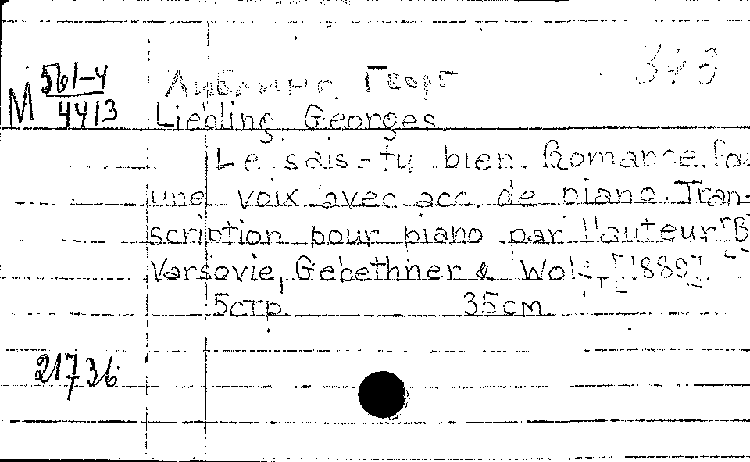 М 561-4
4413
Либлинг, Георг
Liebling, Georges
Le sais-tu bien. Romance. Po
une voix avec acc. de piano. Tran-
scription pour piano par l'auteur
Varsovie, Gebethner & Wolf
5стр. 35см
21736